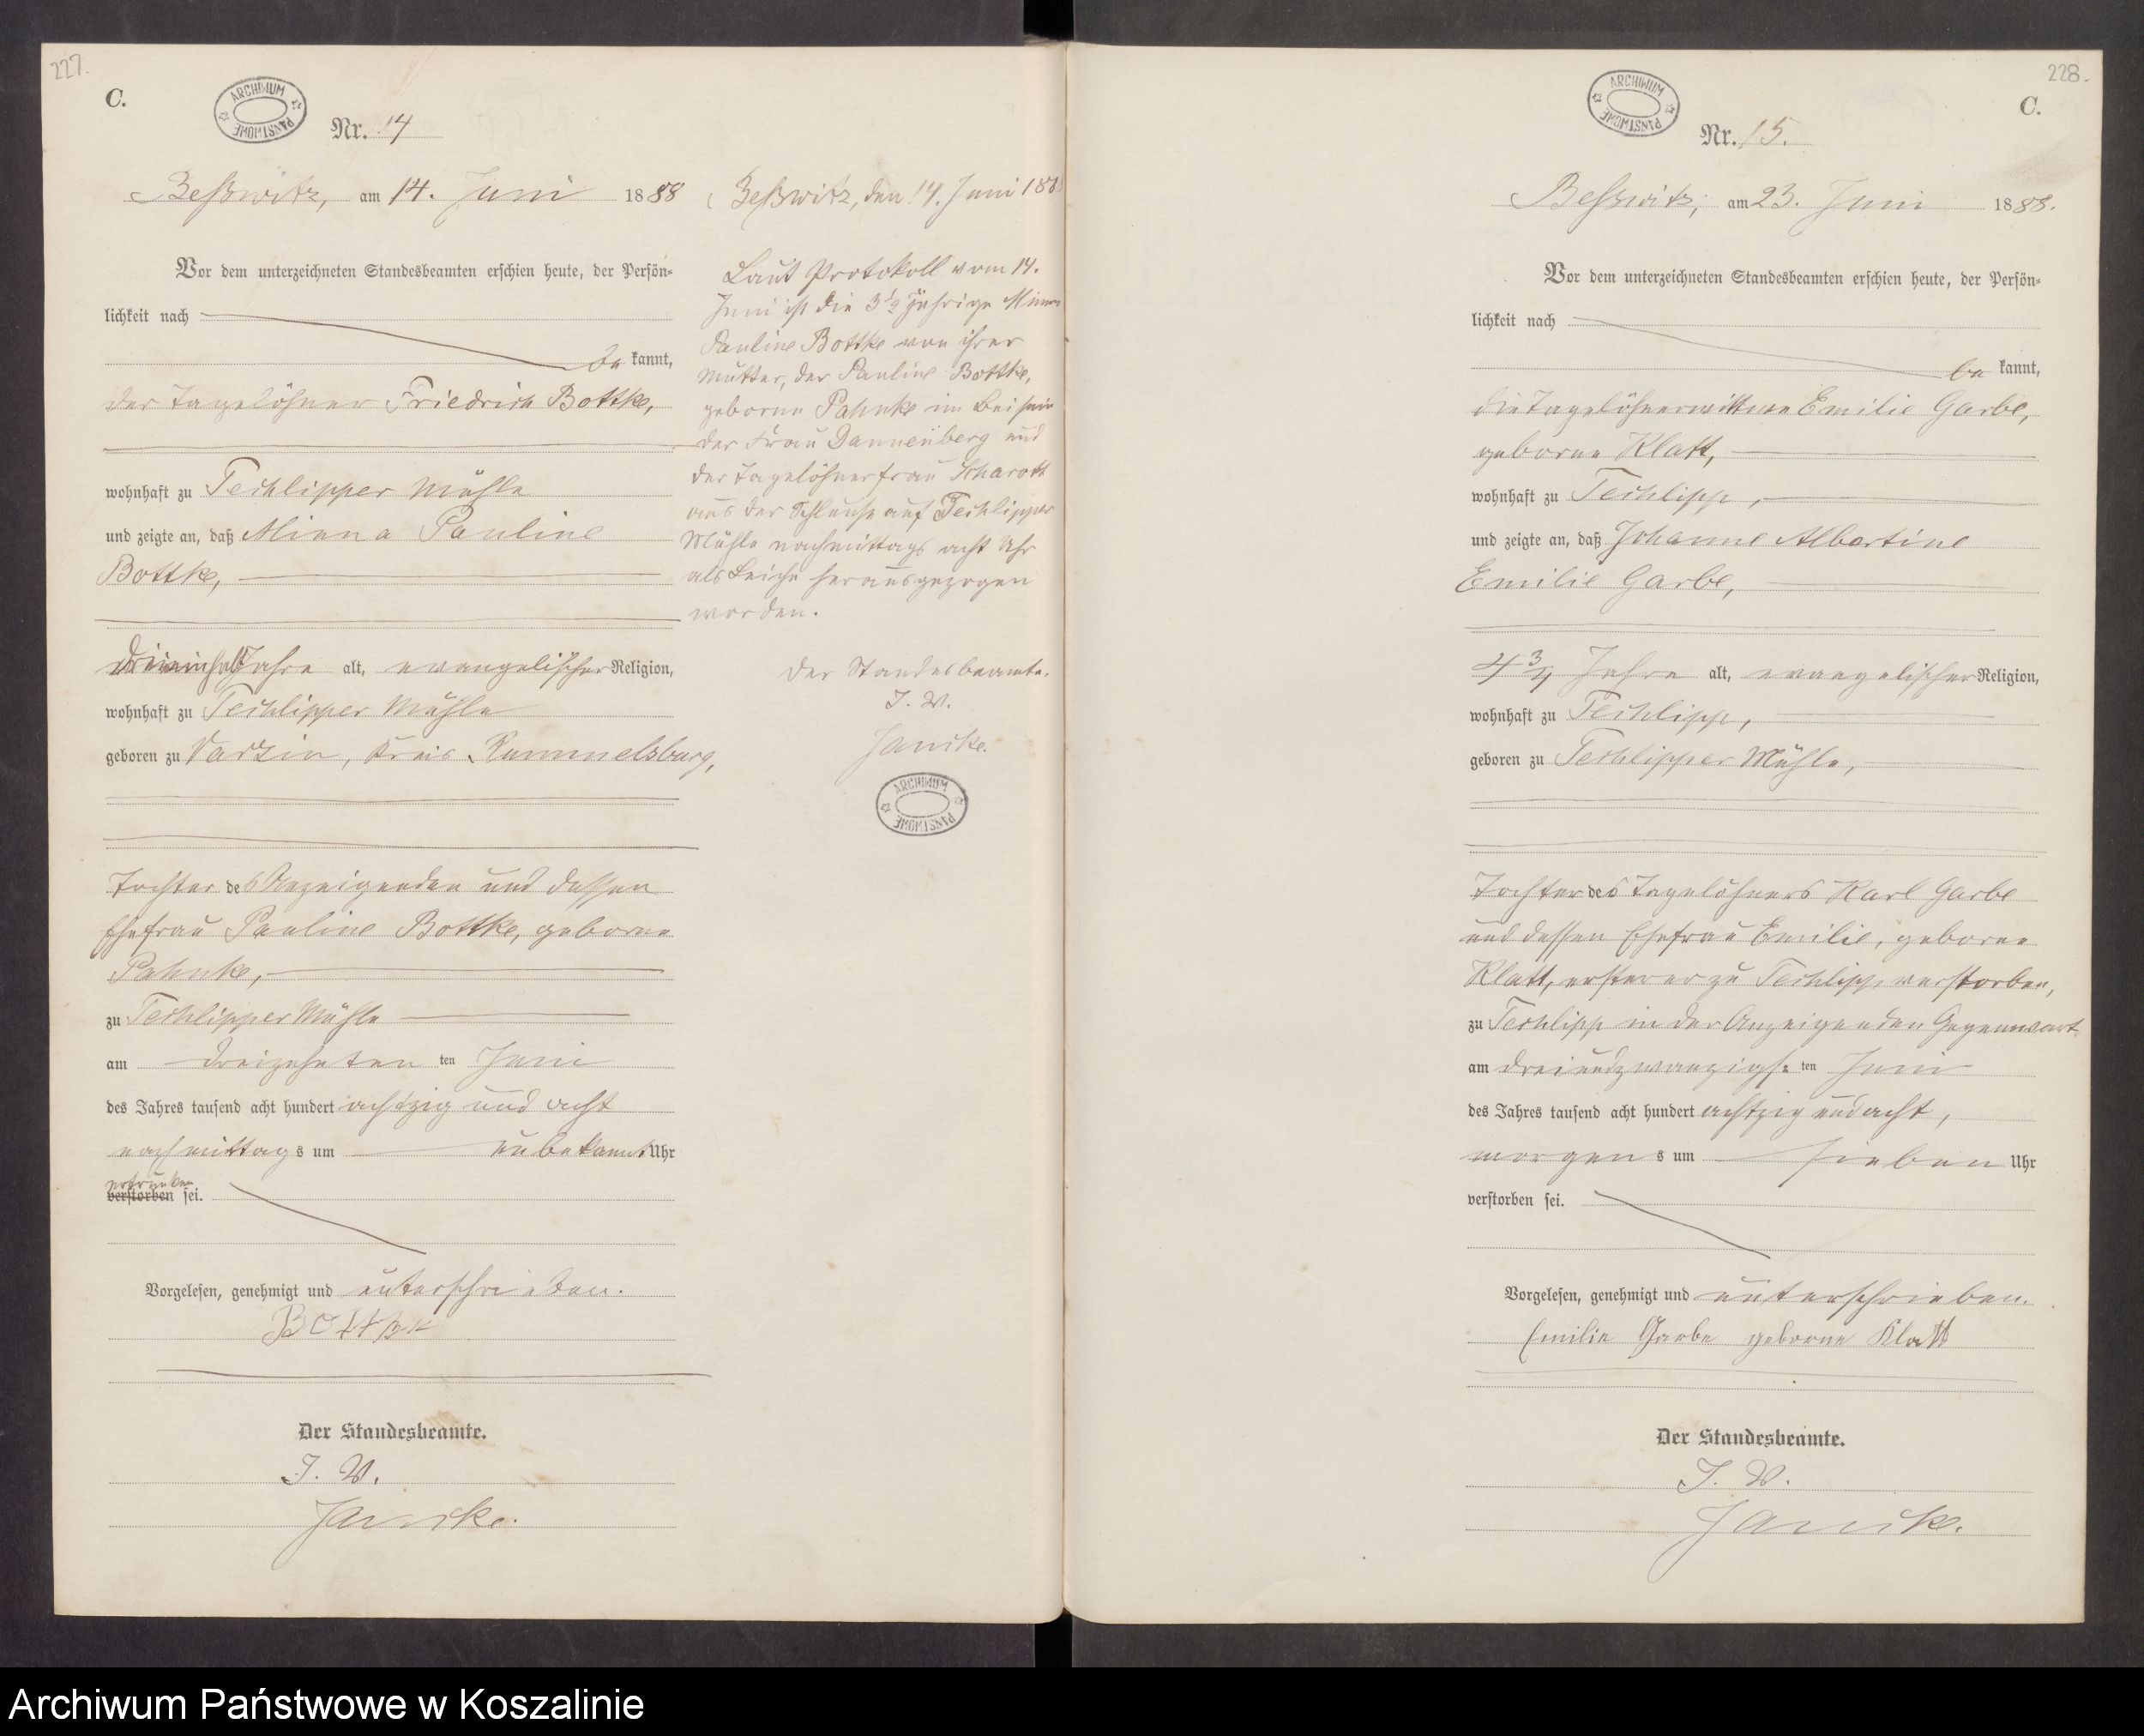 227.
C.
ARCHIWUM PAŃSTWOWE
Nr. 14
Beßwitz, am 14. Juni 1888
Vor dem unterzeichneten Standesbeamten erschien heute, der Persön=
lichkeit nach
be kannt,
der Tagelöhner Friedrich Bottke,
wohnhaft zu Techlipper Mühle
und zeigte an, daß Minna Pauline
Bottke,
dreieinhalb Jahre alt, evangelischer Religion,
wohnhaft zu Techlipper Mühle
geboren zu Varzin, Kreis Rummelsburg,
Tochter des Anzeigenden und dessen
Ehefrau Pauline Bottke, geborne
Pahnke,
zu Techlipper Mühle
am dreizehnten ten Juni
des Jahres tausend acht hundert achtzig und acht
nachmittags um unbekannt Uhr
ertrunken
verstorben sei.
Vorgelesen, genehmigt und unterschrieben.
Bottke
Der Standesbeamte.
J. V.
Janicke.
Beßwitz, den 14. Juni 188
Laut Protokoll vom 14.
Juni ist die 3 1/2 jährige Minna
Pauline Bottke von ihrer
Mutter, der Pauline Bottke,
geborne Pahnke im Beisein
der Frau Dannenberg und
der Tagelöhnerfrau Scharott
aus der Schleuse auf Techlipper
Mühle nachmittags acht Uhr
als Leiche herausgezogen
worden.
Der Standesbeamte.
J. V.
Janicke.
ARCHIWUM PAŃSTWOWE
228.
C.
ARCHIWUM PAŃSTWOWE
Nr. 15.
Beßwitz, am 23. Juni 1888.
Vor dem unterzeichneten Standesbeamten erschien heute, der Persön=
lichkeit nach
be kannt,
die Tagelöhnerwittwe Emilie Garbe,
geborne Klatt,
wohnhaft zu Techlipp,
und zeigte an, daß Johanne Albertine
Emilie Garbe,
4 3/4 Jahre alt, evangelischer Religion,
wohnhaft zu Techlipp,
geboren zu Techlipper Mühle,
Tochter des Tagelöhners Karl Garbe
und dessen Ehefrau Emilie, geborne
Klatt, ersterer zu Techlipp verstorben,
zu Techlipp in der Anzeigenden Gegenwart
am dreiundzwanzigs ten Juni
des Jahres tausend acht hundert achtzig und acht,
morgens um sieben Uhr
verstorben sei.
Vorgelesen, genehmigt und unterschrieben.
Emilie Garbe geborne Klatt
Der Standesbeamte.
J. V.
Janicke.
Archiwum Państwowe w Koszalinie